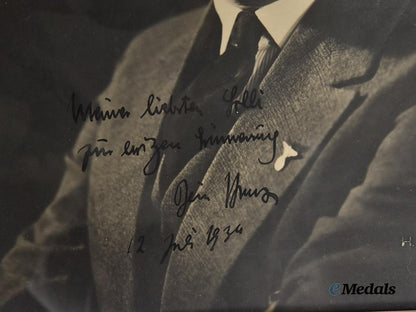 Meiner liebsten Lolli
zur ewigen Erinnerung
Dein
12 Juli 1934
H
eMedals